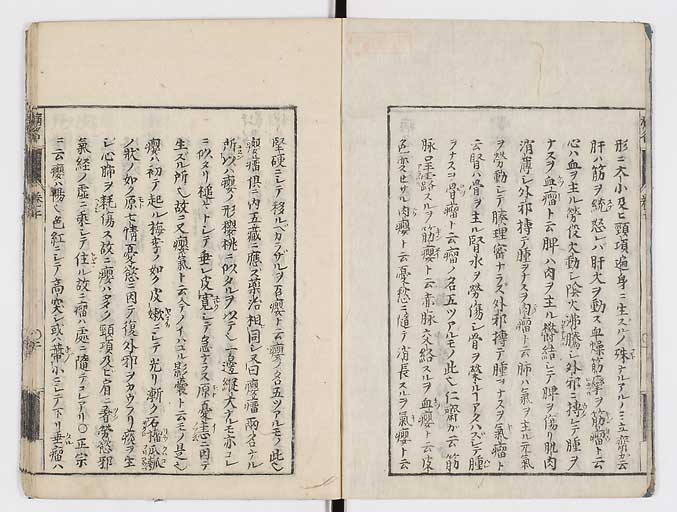 形ニ大小及ヒ頸項遍身ニ生スルノ殊ナルアルノミ立齋カ云
肝ハ筋ヲ統怒レハ肝火ヲ動ス血燥筋攣ヲ筋瘤ト云
心ハ血ヲ主ル勞役火動シ陰火沸騰シ外邪ニ搏レテ腫ヲ
ナスヲ血瘤ト云脾ハ肉ヲ主ル鬱結シテ脾ヲ傷リ肌肉
消薄シ外邪搏テ腫ヲナスヲ肉瘤ト云肺ハ氣ヲ主ル元氣
ヲ勞動シテ腠理密ナラス外邪搏テ腫ヲナスヲ氣瘤ト
云腎ハ骨ヲ主ル腎水ヲ勞傷シ骨ヲ榮ルコアタハズシテ腫
ヲナスヲ骨瘤ト云瘤ノ名五ツアルモノ此也仁齋カ云筋
脉呈露スルヲ筋癭ト云赤脉交絡スルヲ血癭ト云皮
色変セサル肉癭ト云憂愁ニ隨テ消長スルヲ氣癭ト云
堅硬ニシテ移ルベカラザルヲ石癭ト云癭ノ名五ツアルモノ此也
癭瘤倶ニ内五藏ニ應ス藥治相同シ又曰癭瘤両名ナル
所以ハ癭ノ形櫻桃ニ似タルヲ以テ也一邊縦大ナルモ亦コレ
ニ似スリ槌々トシテ垂レ皮寛シテ急ナラス原憂恚ニ因テ
生スル所也故ニ又癭氣ト云今ノイハユル影嚢ト云モノ是也
瘤ハ初テ起ル梅李ノ如ク皮嫩ニシテ光リ漸ク石榴瓜瓠
ノ状ノ如ク原七情憂慾ニ因テ復外邪ヲカウフリ痰ヲ生
シ心肺ヲ耗傷ス故ニ癭ハ多ク頸項及ヒ肩ニ着勞慾邪
氣経ノ虚ニ乘シテ住ル故ニ瘤ハ處ニ隨テコレアリ〇正宗
ニ云癭ハ陽也色紅ニシテ高突シ或ハ蒂小ニシテ下リ垂瘤ハ